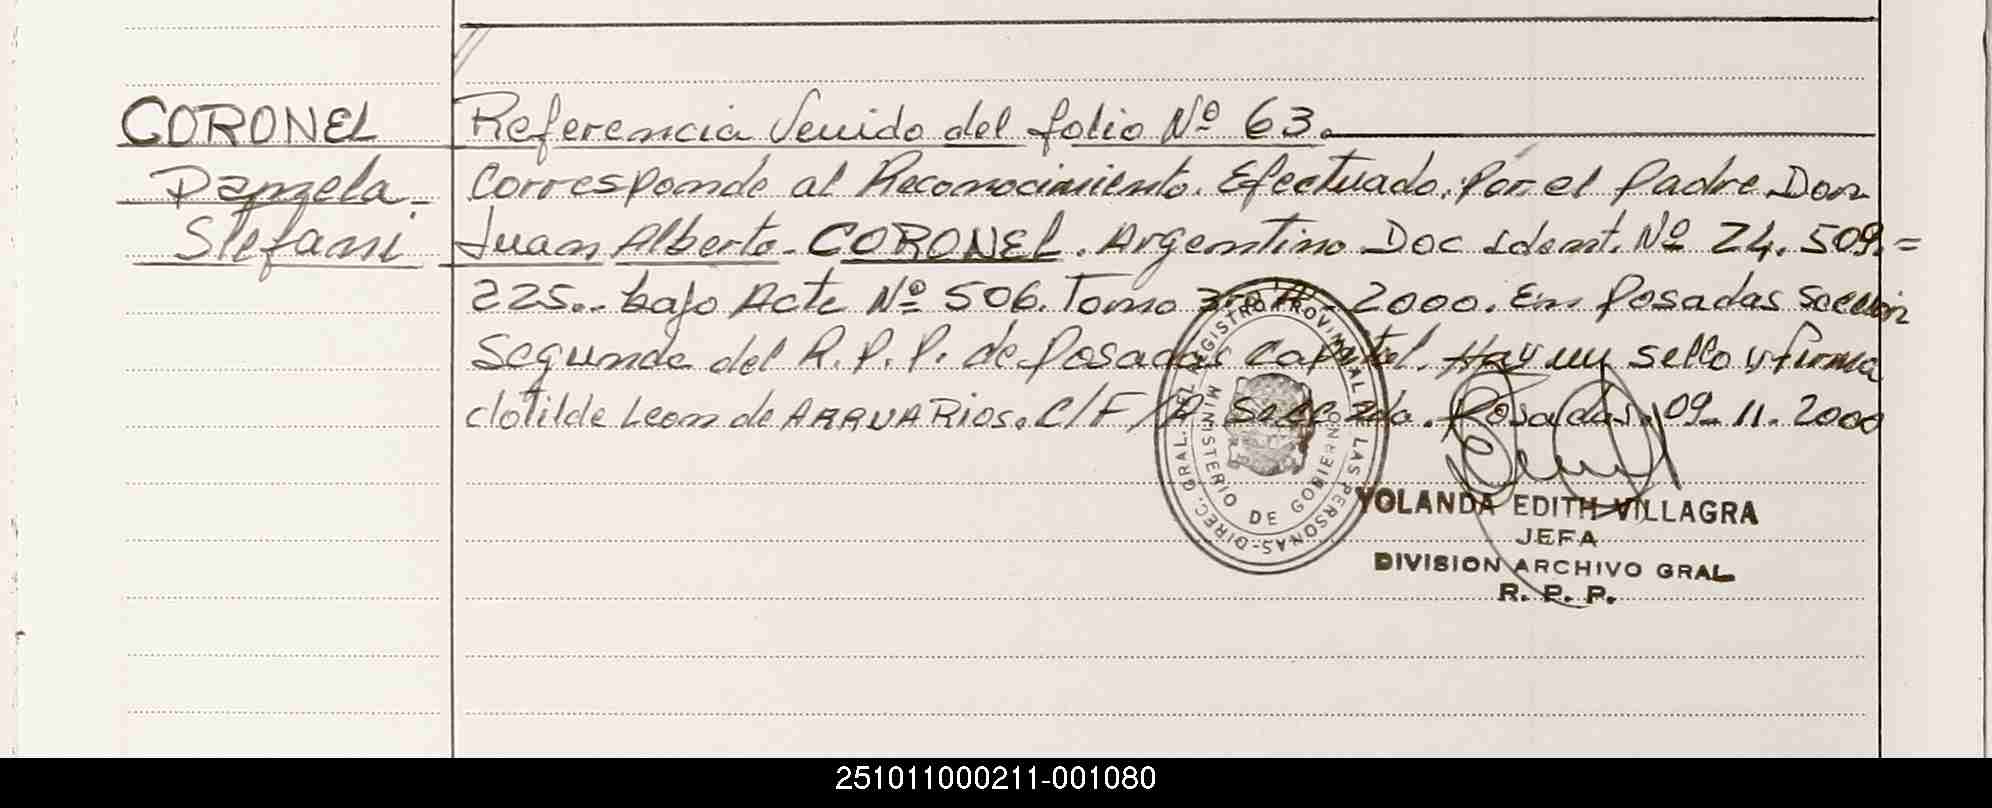 CORONEL
Pamela.
Stefani
Referencia Venido del folio Nº 63.
Corresponde al Reconocimiento. Efectuado. Por el Padre Don
Juan Alberto. CORONEL. Argentino Doc Ident. Nº 24. 509.=
225.. bajo Acta Nº 506. Tomo 3ro 2000. En Posadas Sección
Segunda del R. P. P. de Posadas Capital. Hay un sello y firma
Clotilde Leon de ARRUA RIOS. C/F/R. Posadas. 09-11. 2000
DIREC. GRAL. DEL REGISTRO PROVINCIAL DE LAS PERSONAS-
MINISTERIO DE GOBIERNO
YOLANDA EDITH VILLAGRA
JEFA
DIVISION ARCHIVO GRAL.
R. P. P.
251011000211-001080